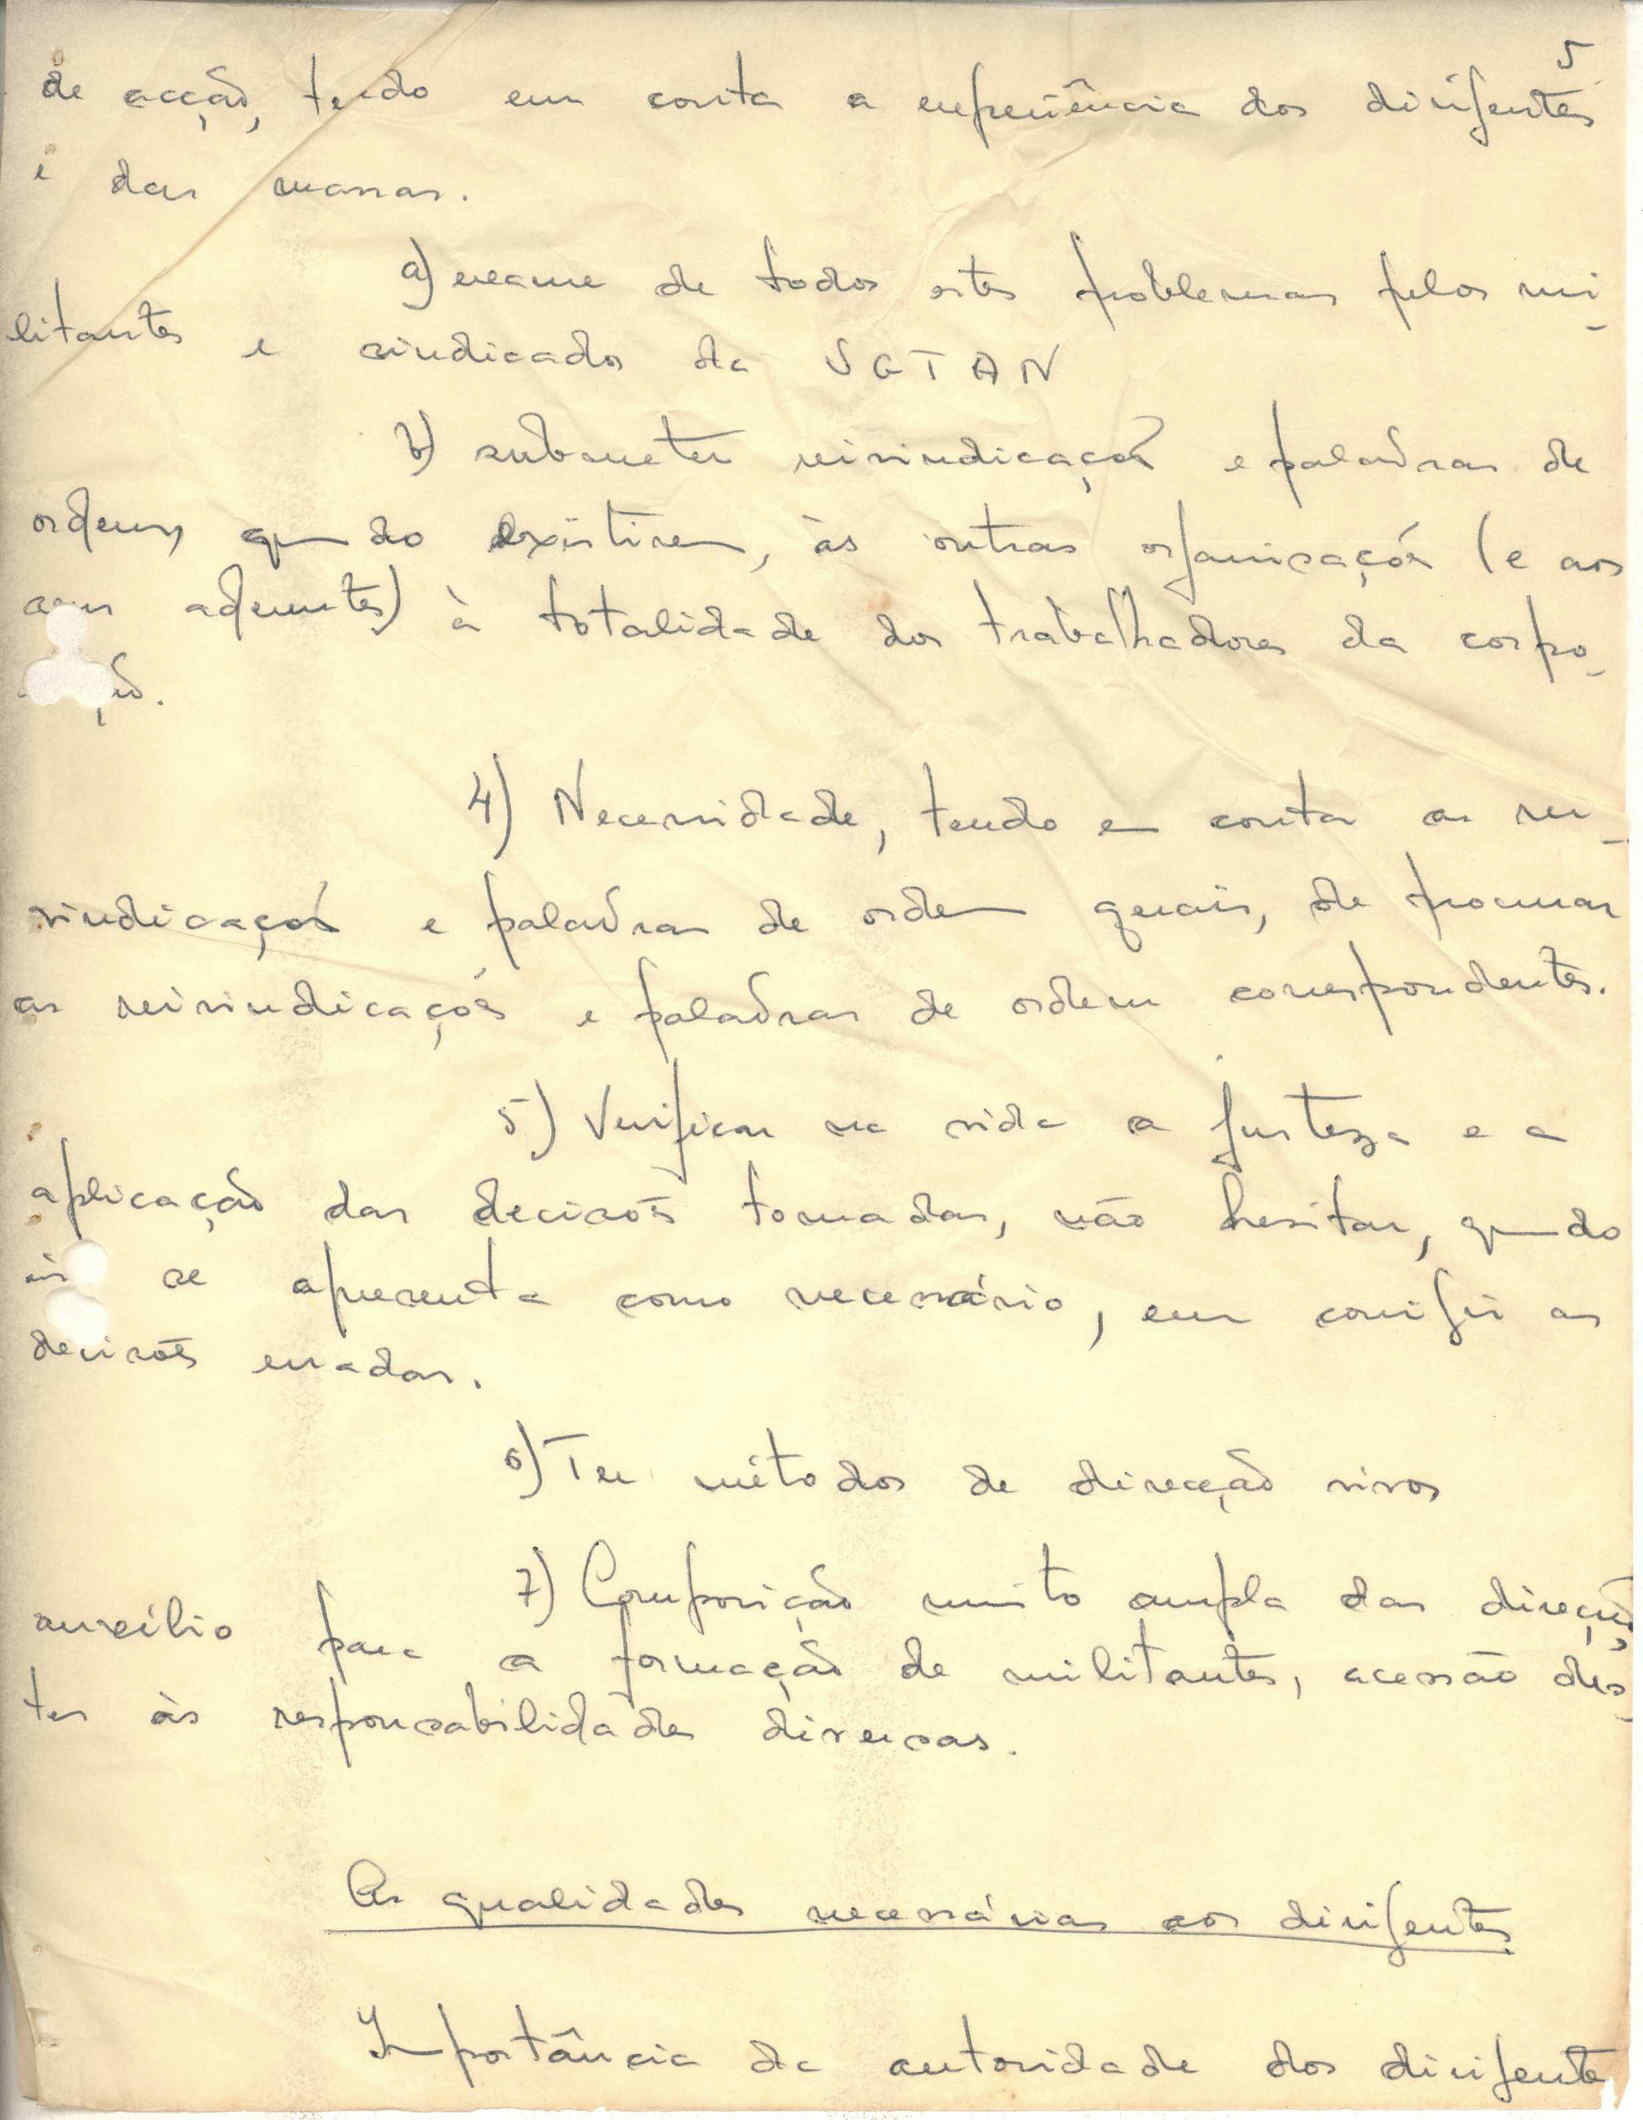 5
de acção, tendo em conta a experiência dos dirigentes
e das massas.
a) exame de todos estes problemas pelos mi-
litantes e sindicados da UGTAN
b) submeter reivindicações e palavras de
ordem, quando existirem, às outras organizações (e aos
seus aderentes) à totalidade dos trabalhadores da corpo-
ção.
4) Necessidade, tendo em conta as rei-
vindicações e palavras de ordem gerais, de procurar
as reivindicações e palavras de ordem correspondentes.
5) Verificar na vida a justeza e a
aplicação das decisões tomadas, não hesitar, quando
se apresenta como necessário, em corrigir as
decisões erradas.
6) Ter métodos de direcção vivos
7) Composição muito ampla das direcções
auxílio para a formação de militantes, acessão des-
tes às responsabilidades diversas.
As qualidades necessárias aos dirigentes.
Importância da autoridade dos dirigentes